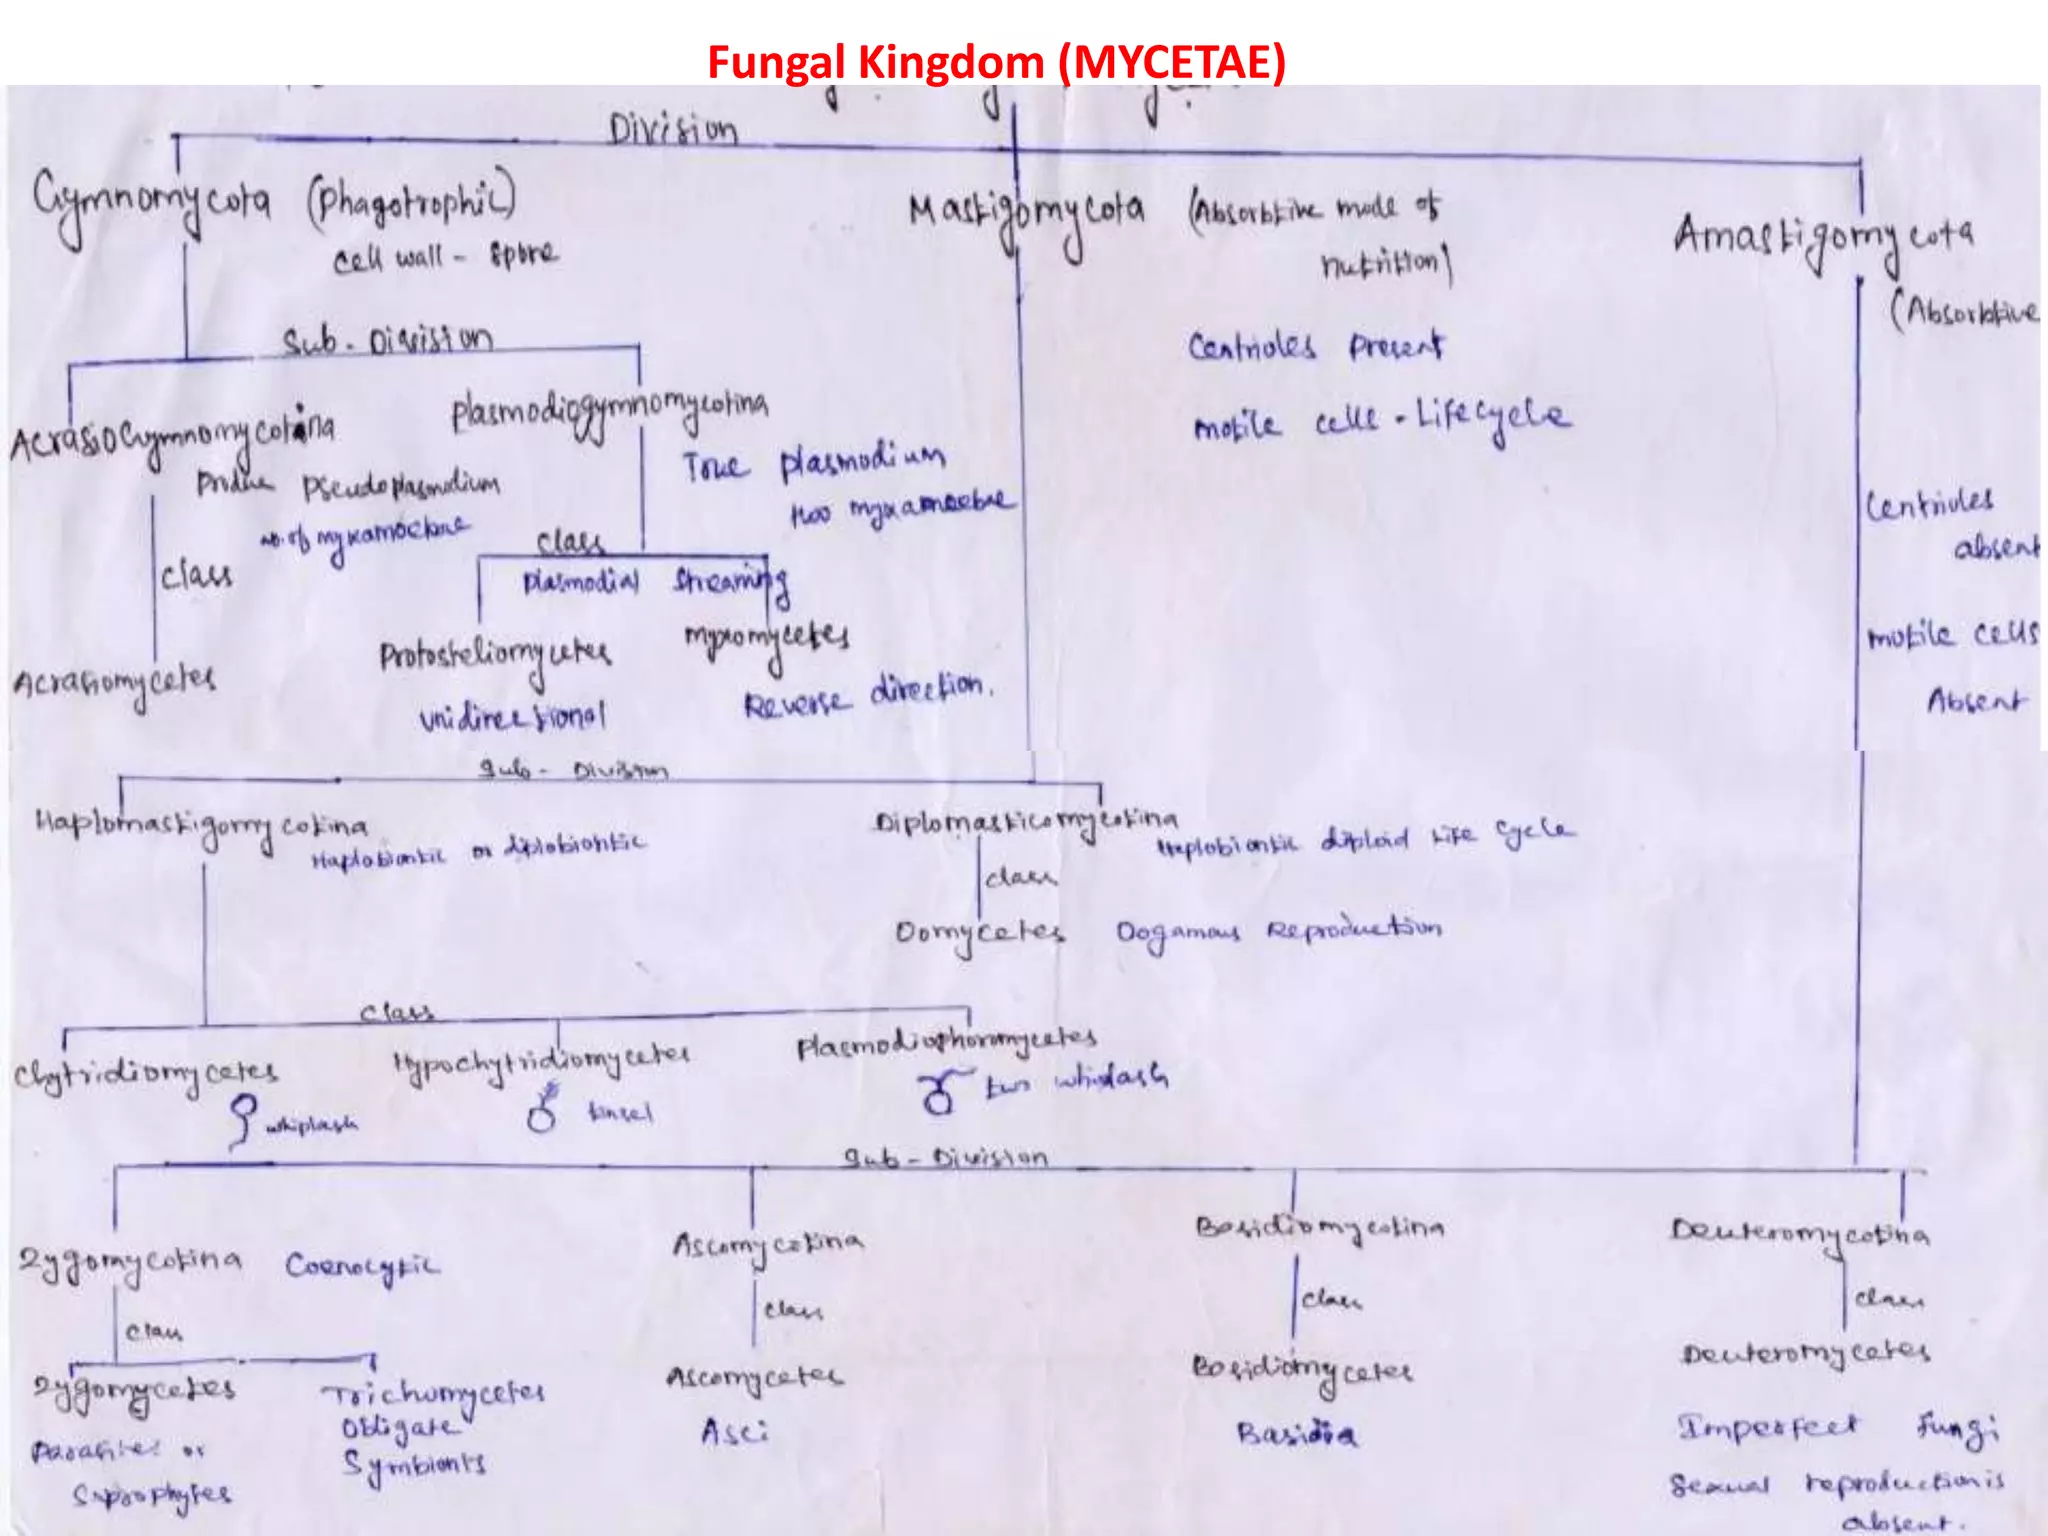 Fungal Kingdom (MYCETAE)
Division
Gymnomycota (Phagotrophic)
cell wall - spore
Mastigomycota (Absorbtive mode of
nutrition)
Amastigomycota
(Absorbtive
Centrioles Present
motile cells - Lifecycle
Sub-Division
Acrasiogymnomycotina
Plasmodiogymnomycotina
Produe Pseudoplasmodium
no. of myxamoebae
True plasmodium
myxamoebae
Centrioles
absent
class
class
Plasmodial Streaming
Acrasiomycetes
Protosteliomycetes
unidirectional
myxomycetes
Reverse direction.
motile cells
Absent
Sub-Division
Haplomastigomycotina
Haplobiontic or diplobiontic
Diplomasticomycotina
Haplobiontic diploid Life Cycle
class
Oomycetes Oogamous Reproduction
Class
Chytridiomycetes
whiplash
Hypochytridiomycetes
tinsel
Plasmodiophoromycetes
two whiplash
Sub-Division
Zygomycotina Coenocytic
Ascomycotina
Basidiomycotina
Deuteromycotina
class
class
class
class
Zygomycetes
Parasites or
Saprophytes
Trichomycetes
Obligate
Symbionts
Ascomycetes
Asci
Basidiomycetes
Basidia
Deuteromycetes
Imperfect Fungi
Sexual reproduction is
absent.